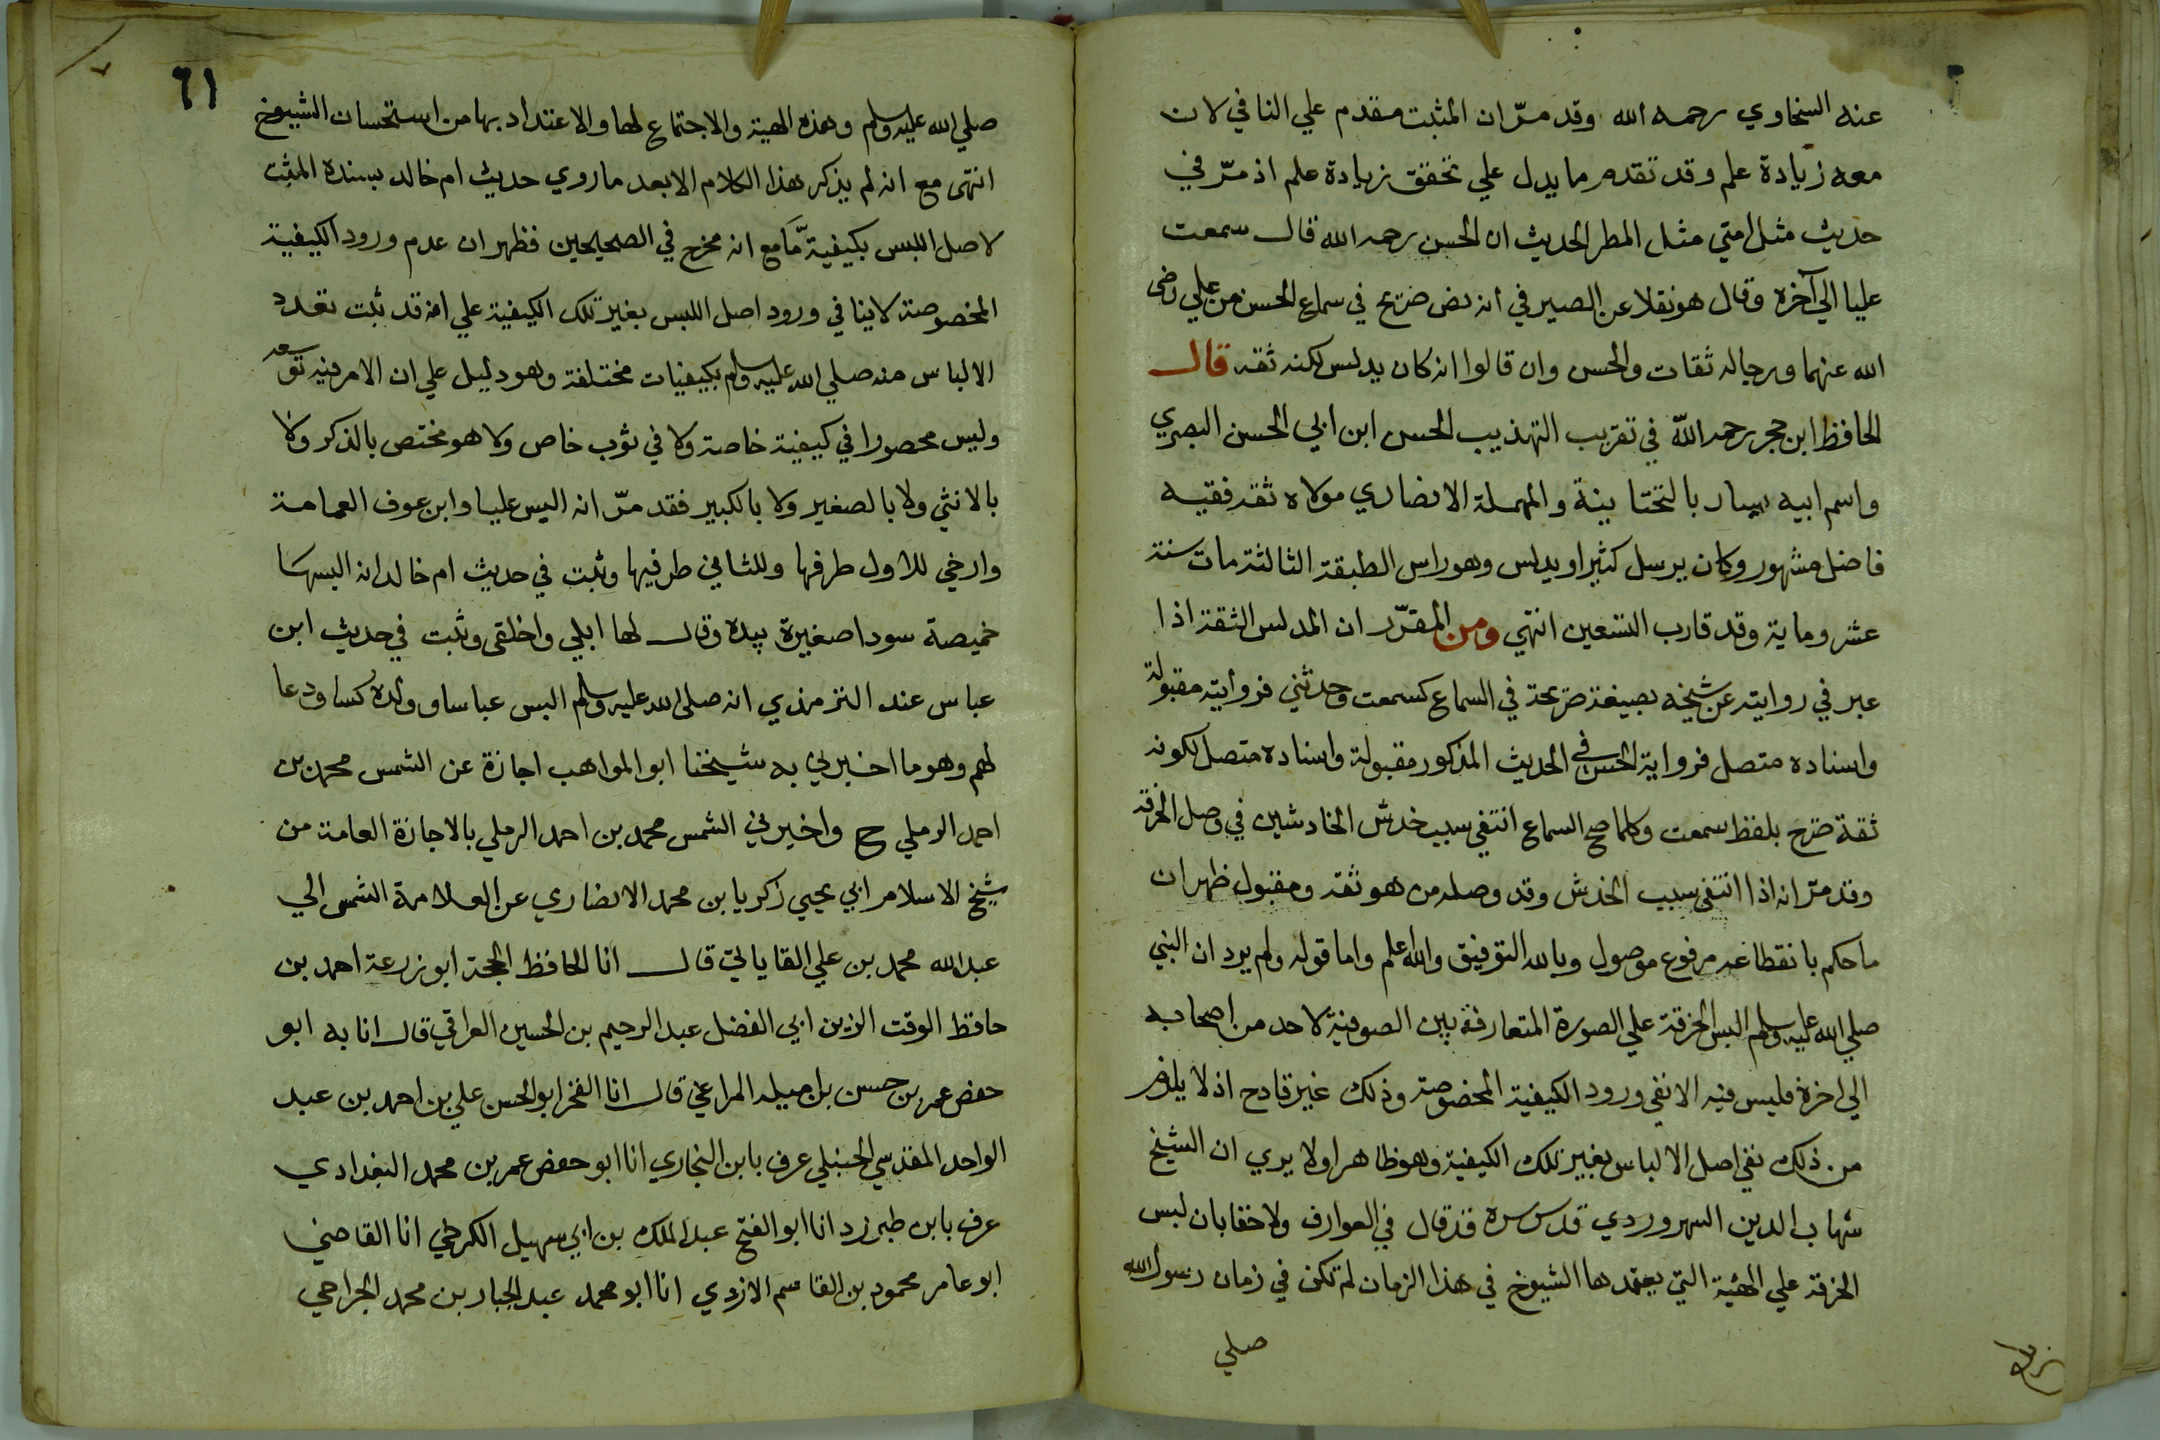 عنه السخاوي رحمه الله وقد مرّ ان المثبت مقدم علي النافي لان
معه زيادة علم وقد تقدم ما يدل علي تحقق زيادة علم اذ مرّ في
حديث مثل امتي مثل المطر الحديث ان الحسن رحمه الله قال سمعت
عليا الي آخره وقال هو نقلا عن الصيرفي انه نص صريح في سماع الحسن من علي رضي
الله عنهما ورجاله ثقات والحسن وان قالوا انه كان يدلس لكنه ثقه قال
الحافظ ابن حجر رحمه اللّه في تقريب التهذيب الحسن ابن ابي الحسن البصري
واسم ابيه يسار بالتحتانية والمهملة الانصاري مولاه ثقه فقيه
فاضل مشهور وكان يرسل كثيرا ويدلس وهو راس الطبقة الثالثة مات سنة
عشر وماية وقد قارب التسعين انتهي ومن المقرّر ان المدلس الثقة اذا
عبر في روايته عن شيخه بصيغة صريحة في السماع كسمعت وحدثني فروايته مقبولة
واسناده متصل فرواية الحسن في الحديث المذكور مقبولة واسناده متصل لكونه
ثقة صرح بلفظ سمعت وكلما صح السماع انتفي سبب خدش الخادشين في وصل الخرقة
وقد مرّ انه اذا انتفي سبب الخدش وقد وصله من هو ثقه ومقبول ظهر ان
ما حكم بانقطاعه مرفوع موصول وبالله التوفيق والله اعلم واما قوله ولم يرد ان النبي
صلي الله عليه وسلم البس الخرقة علي الصورة المتعارفة بين الصوفية لاحد من اصحابه
الي اخره فليس فيه الا نفي ورود الكيفية المخصوصة وذلك غير قادح اذ لا يلزم
من ذلك نفي اصل الالباس بغير تلك الكيفية وهو ظاهر اولا يري ان الشيخ
شهاب الدين السهروردي قدس سره قد قال في العوارف ولا خفا بان لبس
الخرقة علي الهيئة التي يعتمدها الشيوخ في هذا الزمان لم تكن في زمان رسول الله
صلي
٦١
صلي الله عليه وسلم وهذه الهية والاجتماع لها والاعتداد بها من استحسان الشيوخ
انتهى مع انه لم يذكر هذا الكلام الا بعد ما روي حديث ام خالد بسنده المثبت
لاصل اللبس بكيفية مّا مع انه مخرج في الصحيحين فظهر ان عدم ورود الكيفية
المخصوصة لا ينافي ورود اصل اللبس بغير تلك الكيفية علي انه قد ثبت تعدد
الالباس منه صلي الله عليه وسلم بكيفيات مختلفة وهو دليل علي ان الامر فيه توسعه
وليس محصورا في كيفية خاصة ولا في ثوب خاص ولا هو مختص بالذكر ولا
بالانثي ولا بالصغير ولا بالكبير فقد مرّ انه البس عليا وابن عوف العمامة
وارخي للاول طرفها وللثاني طرفيها وثبت في حديث ام خالد انه البسها
خميصة سودا صغيرة بيده وقال لها ابلي واخلقي وثبت في حديث ابن
عباس عند الترمذي انه صلي الله عليه وسلم البس عباسا وولده كسا ودعا
لهم وهو ما اخبرني به شيخنا ابو المواهب اجازة عن الشمس محمد بن
احمد الرملي ح واخبرني الشمس محمد بن احمد الرملي بالاجازة العامة من
شيخ الاسلام ابي يحيي زكريا بن محمد الانصاري عن العلامة الشمس ابي
عبد الله محمد بن علي القاياتي قال انا الحافظ الحجة ابو زرعة احمد بن
حافظ الوقت الزين ابي الفضل عبد الرحيم بن الحسين العراقي قال انا به ابو
حفص عمر بن حسن بن اميله المراغي قال انا الفخر ابو الحسن علي بن احمد بن عبد
الواحد المقدسي الحنبلي عرف بابن البخاري انا ابو حفص عمر بن محمد البغدادي
عرف بابن طبرزد انا ابو الفتح عبد الملك بن ابي سهيل الكرخي انا القاضي
ابو عامر محمود بن القاسم الازدي انا ابو محمد عبد الجبار بن محمد الجراحي